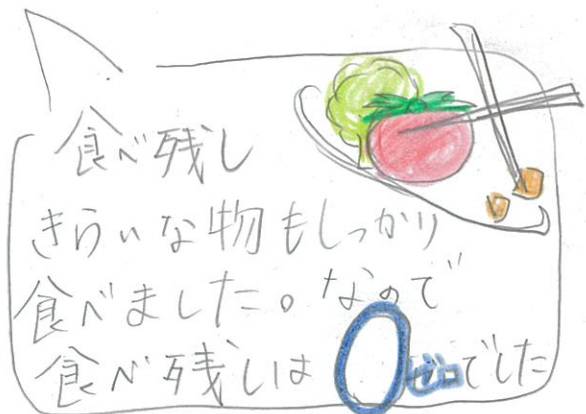 食べ残し
きらいな物もしっかり
食べました。なので
食べ残しは0ゼロでした